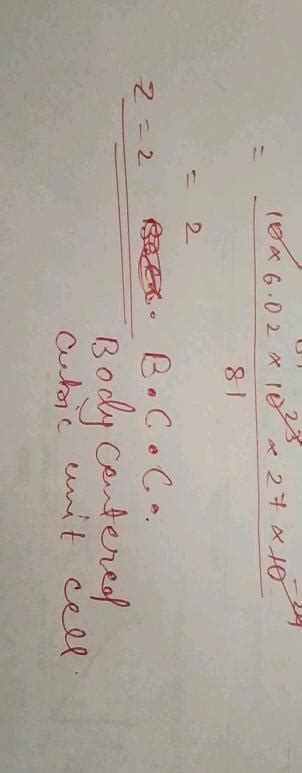 = 10 × 6.02 × 10^23 × 27 × 10^-24
81
= 2
Z = 2 B.C.C.
Body centered
cubic unit cell.